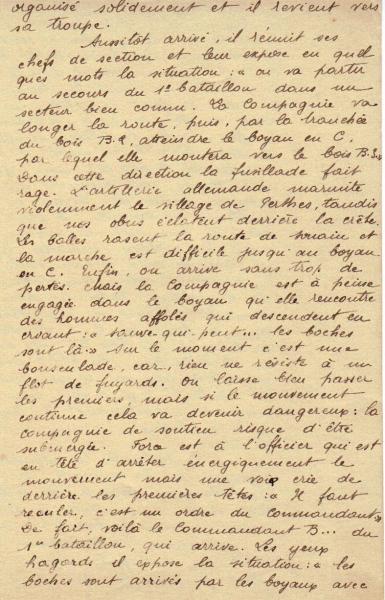 organisé solidement et il revient vers
sa troupe.
Aussitôt arrivé, il réunit ses
chefs de section et leur expose en quel
ques mots la situation : « on va partir
au secours du 1er bataillon dans un
secteur bien connu. La Compagnie va
longer la route, puis, par la tranchée
du bois B.2, atteindre le boyau en C,
par lequel elle montera vers le bois B.3. »
Dans cette direction la fusillade fait
rage. L'artillerie allemande marmite
violemment le village de Perthes, tandis
que nos obus éclatent derrière la crête.
Les balles rasent la route de Souain et
la marche est difficile jusqu'au boyau
en C. Enfin, on arrive sans trop de
pertes. Mais la Compagnie est à peine
engagée dans le boyau qu'elle rencontre
des hommes affolés qui descendent en
criant : « sauve-qui-peut... les boches
sont là. » Sur le moment c'est une
bousculade, car, rien ne résiste à un
flot de fuyards. On laisse bien passer
les premiers, mais si le mouvement
continue cela va devenir dangereux : la
compagnie de soutien risque d'être
submergée. Force est à l'officier qui est
en tête d'arrêter énergiquement le
mouvement mais une voix crie de
derrière les premières têtes : « Il faut
reculer, c'est un ordre du commandant »
De fait, voilà le Commandant B... du
1er bataillon, qui arrive. Les yeux
hagards il expose la situation : « les
boches sont arrivés par les boyaux avec